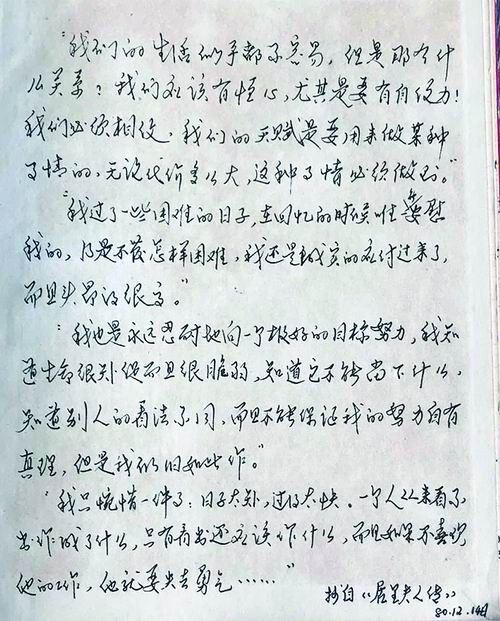 “我们的生活似乎都不容易，但是那有什
么关系？我们应该有恒心，尤其是要有自信力！
我们必须相信，我们的天赋是要用来做某种
事情的，无论代价多么大，这种事情必须做到。”
“我过了一些困难的日子，在回忆的时候唯一安慰
我的，乃是不管怎样困难，我还是诚实的应付过来了，
而且头昂得很高。”
“我也是永远忍耐地向一个极好的目标努力，我知
道生命很短促而且很脆弱，知道它不能留下什么，
知道别人的看法不同，而且不能保证我的努力自有
真理，但是我仍旧如此作。”
“我只惋惜一件事：日子太短，过得太快。一个人从来看不
出作成了什么，只有看出还应该作什么，而且如果不喜欢
他的工作，他就要失去勇气……”
抄自《居里夫人传》
80.12.14日